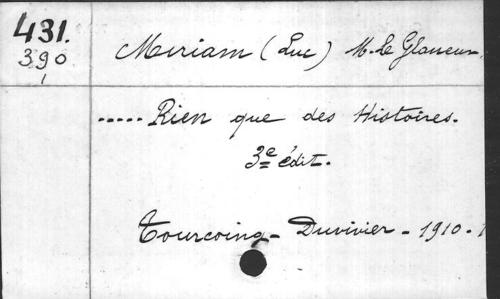 431.
390
Meriam (Luc) M. le Glaneur
..... Rien que des Histoires.
3e édit.
Tourcoing - Duvivier - 1910 -